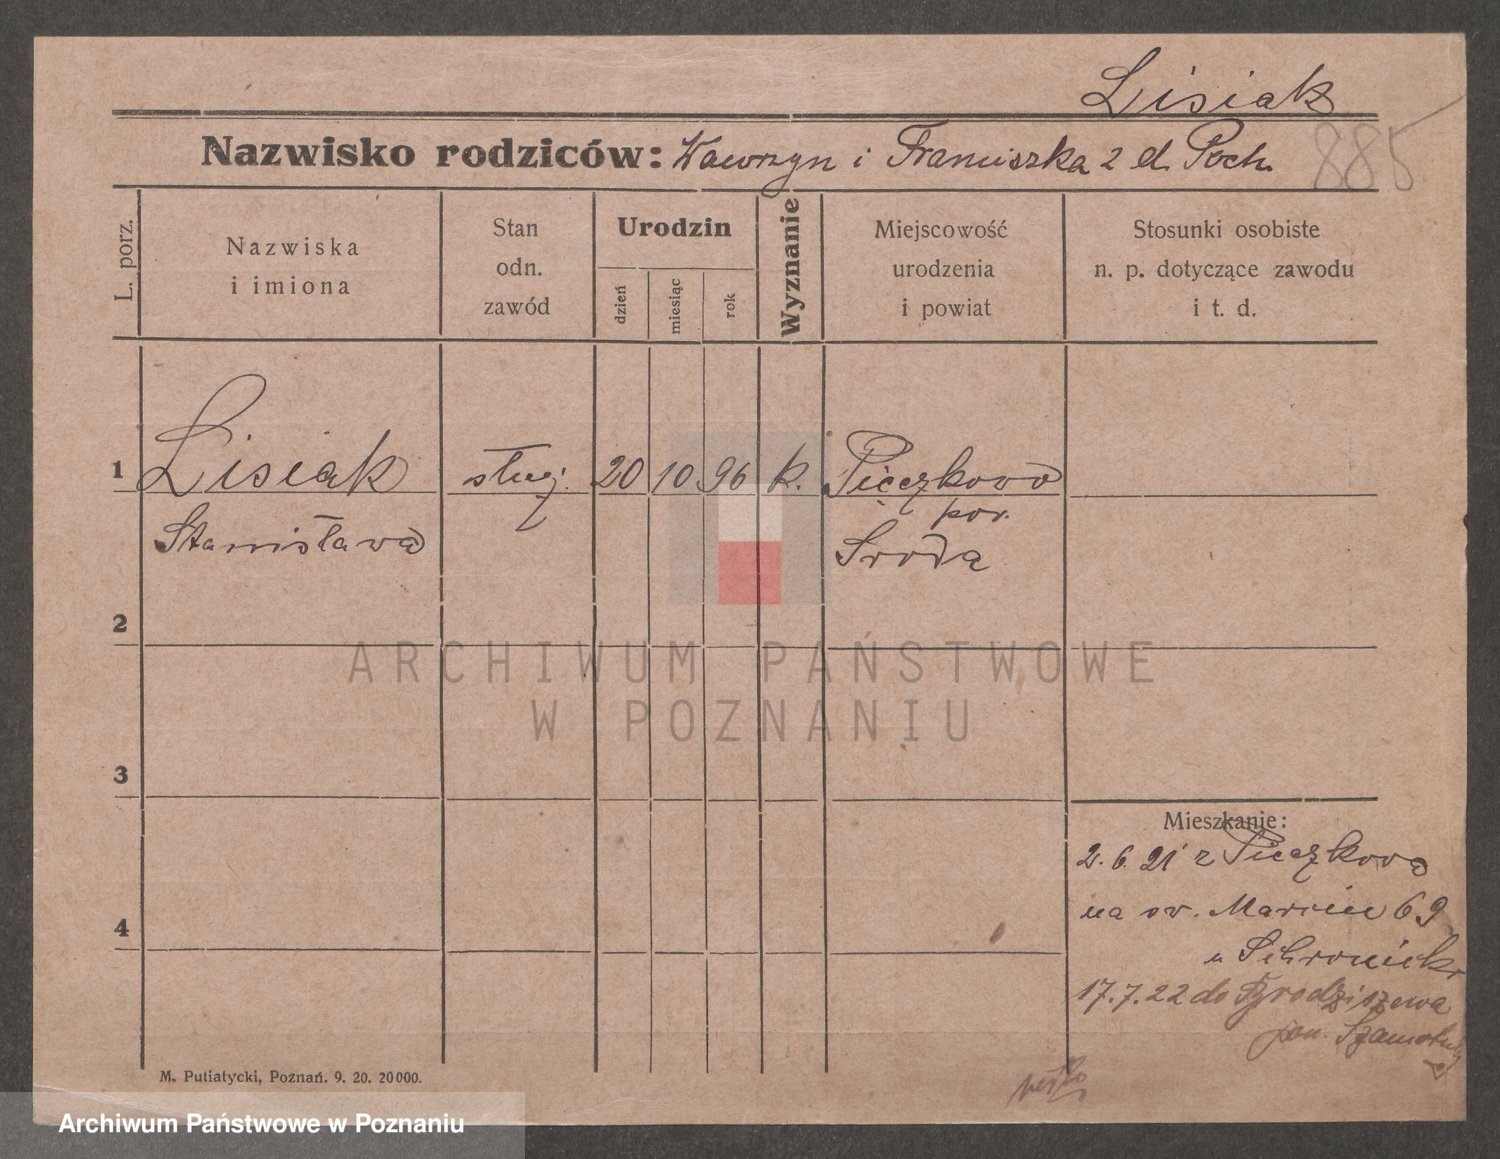 Lisiak
Nazwisko rodziców: Wawrzyn i Franciszka z d. Poch.
885
L. porz.
Nazwiska
i imiona
Stan
odn.
zawód
Urodzin
dzień
miesiąc
rok
Wyznanie
Miejscowość
urodzenia
i powiat
Stosunki osobiste
n. p. dotyczące zawodu
i t. d.
1 Lisiak służ. 20 10 96 k. Pięczkowo
pow.
Stanisława Środa
2
ARCHIWUM PAŃSTWOWE
W POZNANIU
3
Mieszkanie:
2.6.21 z Pięczkowa
na św. Marcin 69
u Schronick
4
17.7.22 do Grodziszewa
pow. Szamotuły
M. Putiatycki, Poznań. 9. 20. 20000.
Archiwum Państwowe w Poznaniu